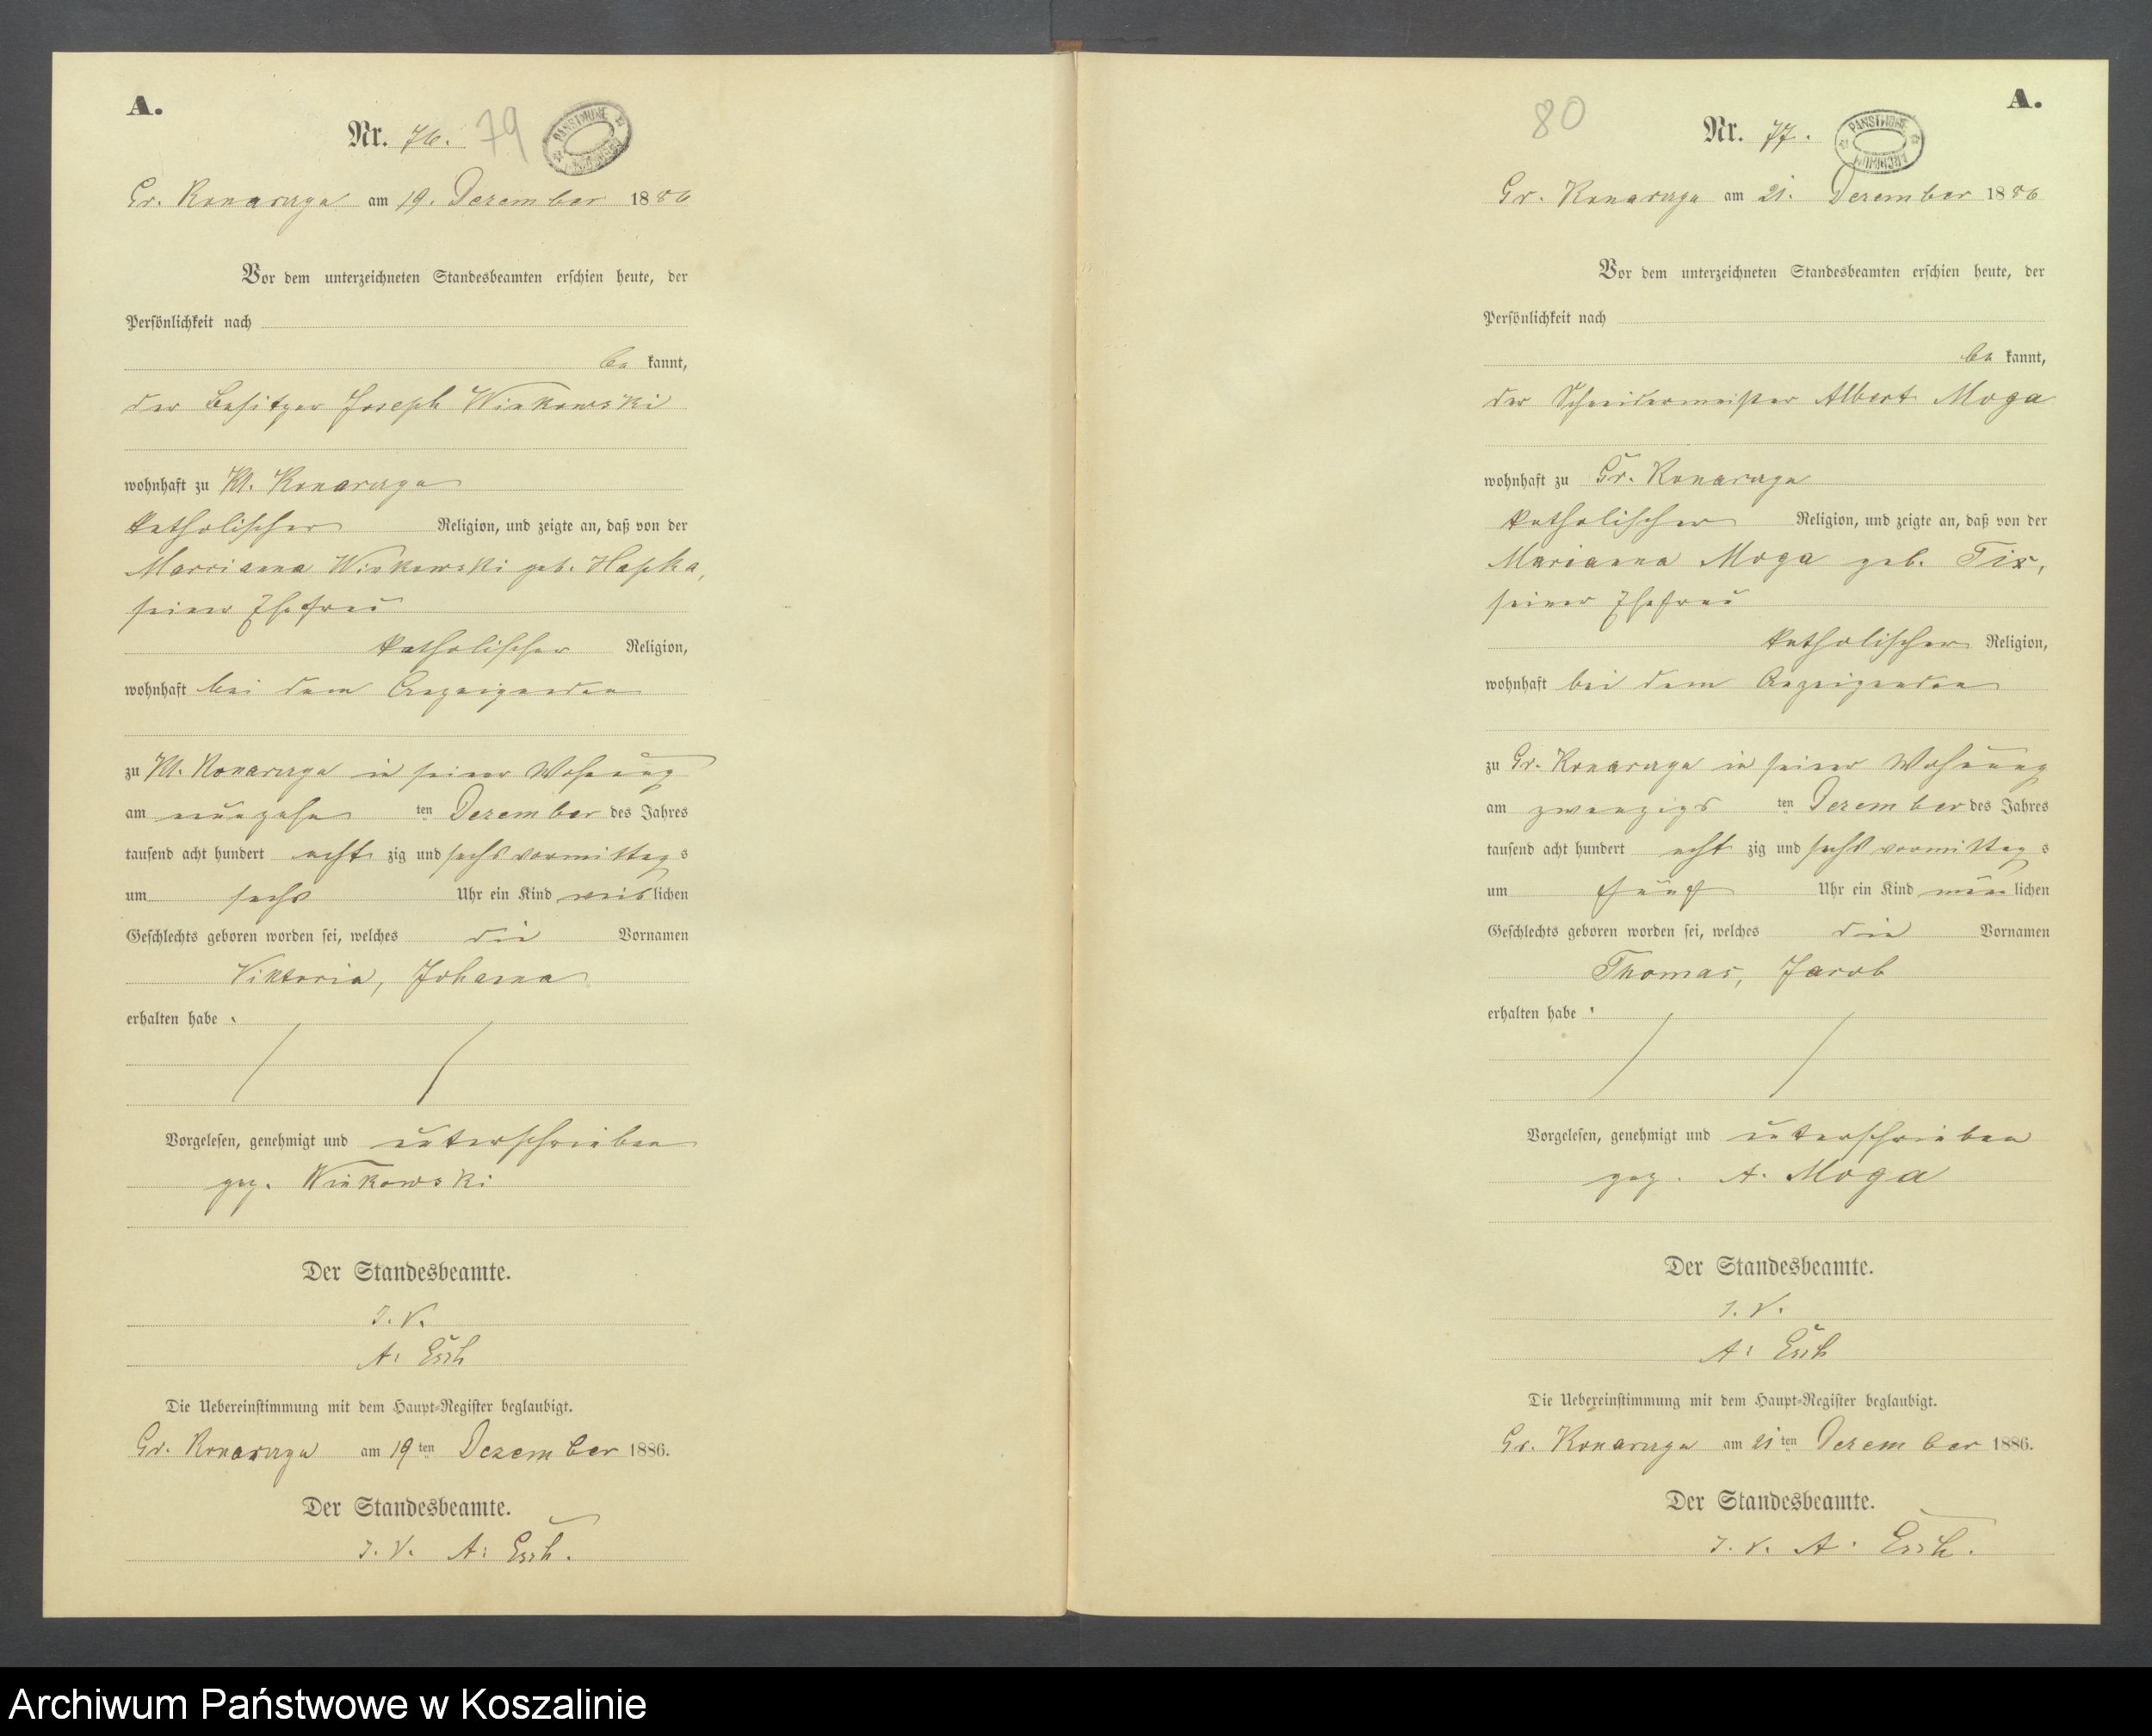 A.
Nr. 76. 79
PAŃSTWOWE ARCHIWUM
Gr. Konarczyn am 19. Dezember 1886
Vor dem unterzeichneten Standesbeamten erschien heute, der
Persönlichkeit nach
be kannt,
der Besitzer Joseph Winkowski
wohnhaft zu Kl. Konarczyn
katholischer Religion, und zeigte an, daß von der
Marrianna Winkowski geb. Hapka,
seiner Ehefrau
katholischer Religion,
wohnhaft bei dem Anzeigenden
zu Kl. Konarczyn in seiner Wohnung
am neunzehn ten Dezember des Jahres
tausend acht hundert acht zig und sechs vormittag s
um sechs Uhr ein Kind weib lichen
Geschlechts geboren worden sei, welches die Vornamen
Viktoria, Johanna
erhalten habe.
Vorgelesen, genehmigt und unterschrieben
gez. Winkowski
Der Standesbeamte.
I. V.
A. Esch
Die Uebereinstimmung mit dem Haupt-Register beglaubigt.
Gr. Konarczyn am 19 ten Dezember 1886.
Der Standesbeamte.
I. V. A. Esch.
A.
80 Nr. 77.
PAŃSTWOWE ARCHIWUM
Gr. Konarczyn am 21. Dezember 1886
Vor dem unterzeichneten Standesbeamten erschien heute, der
Persönlichkeit nach
be kannt,
der Schneidermeister Albert Moga
wohnhaft zu Gr. Konarczyn
katholischer Religion, und zeigte an, daß von der
Marianna Moga geb. Tix,
seiner Ehefrau
katholischer Religion,
wohnhaft bei dem Anzeigenden
zu Gr. Konarczyn in seiner Wohnung
am zwanzigs ten Dezember des Jahres
tausend acht hundert acht zig und sechs vormittag s
um fünf Uhr ein Kind män lichen
Geschlechts geboren worden sei, welches die Vornamen
Thomas, Jacob
erhalten habe.
Vorgelesen, genehmigt und unterschrieben
gez. A. Moga
Der Standesbeamte.
I. V.
A. Esch
Die Uebereinstimmung mit dem Haupt-Register beglaubigt.
Gr. Konarczyn am 21 ten Dezember 1886.
Der Standesbeamte.
I. V. A. Esch.
Archiwum Państwowe w Koszalinie